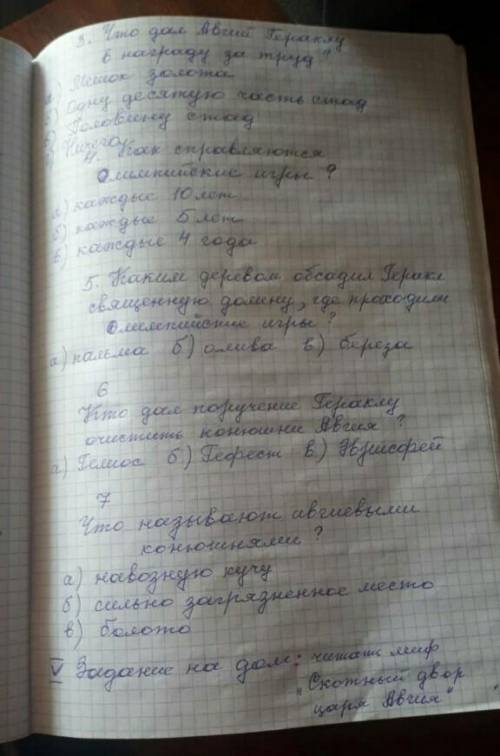 3. Что дал Авгий Гераклу
в награду за труд?
а) Мешок золота
б) Одну десятую часть стад
в) Половину стад
г) Ничего
4. Как справляются
Олимпийские игры?
а) каждые 10 лет
б) каждые 5 лет
в) каждые 4 года
5. Каким деревом обсадил Геракл
священную долину, где проходили
Олимпийские игры?
а) пальма б) олива в) береза
6
Кто дал поручение Гераклу
очистить конюшни Авгия?
а) Гелиос б) Гефест в) Эврисфей
7
Что называют авгиевыми
конюшнями?
а) навозную кучу
б) сильно загрязненное место
в) болото
V Задание на дом: читать миф
"Скотный двор
царя Авгия"